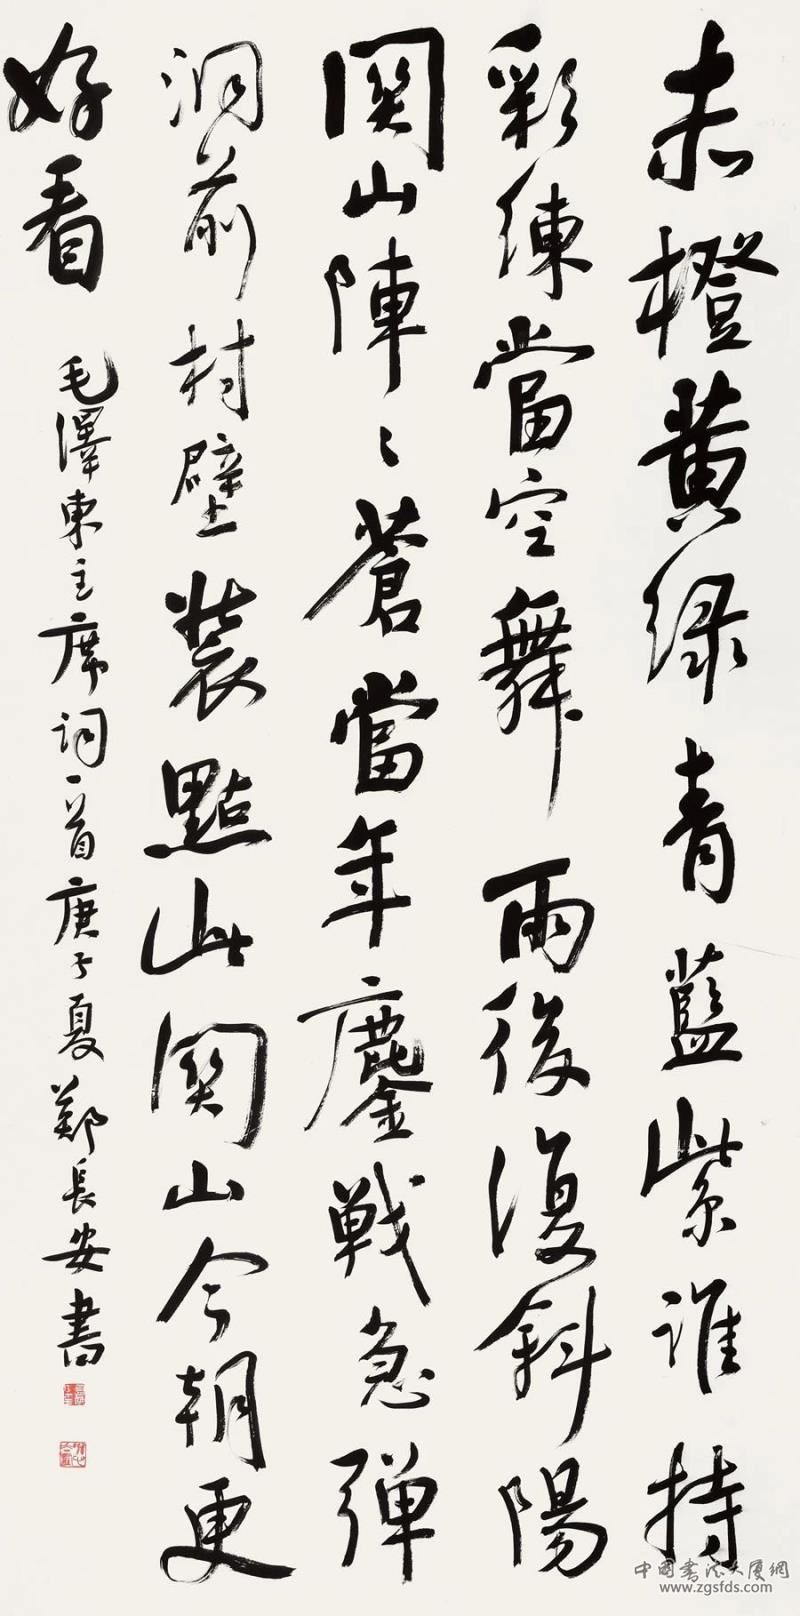 赤橙黄绿青藍紫誰持
彩練當空舞雨後復斜陽
関山陣〻蒼當年鏖戦急弾
洞前村壁装點此関山今朝更
好看
毛澤東主席詞一首庚子夏鄭長安書
中国書法大厦網
www.zgsfds.com